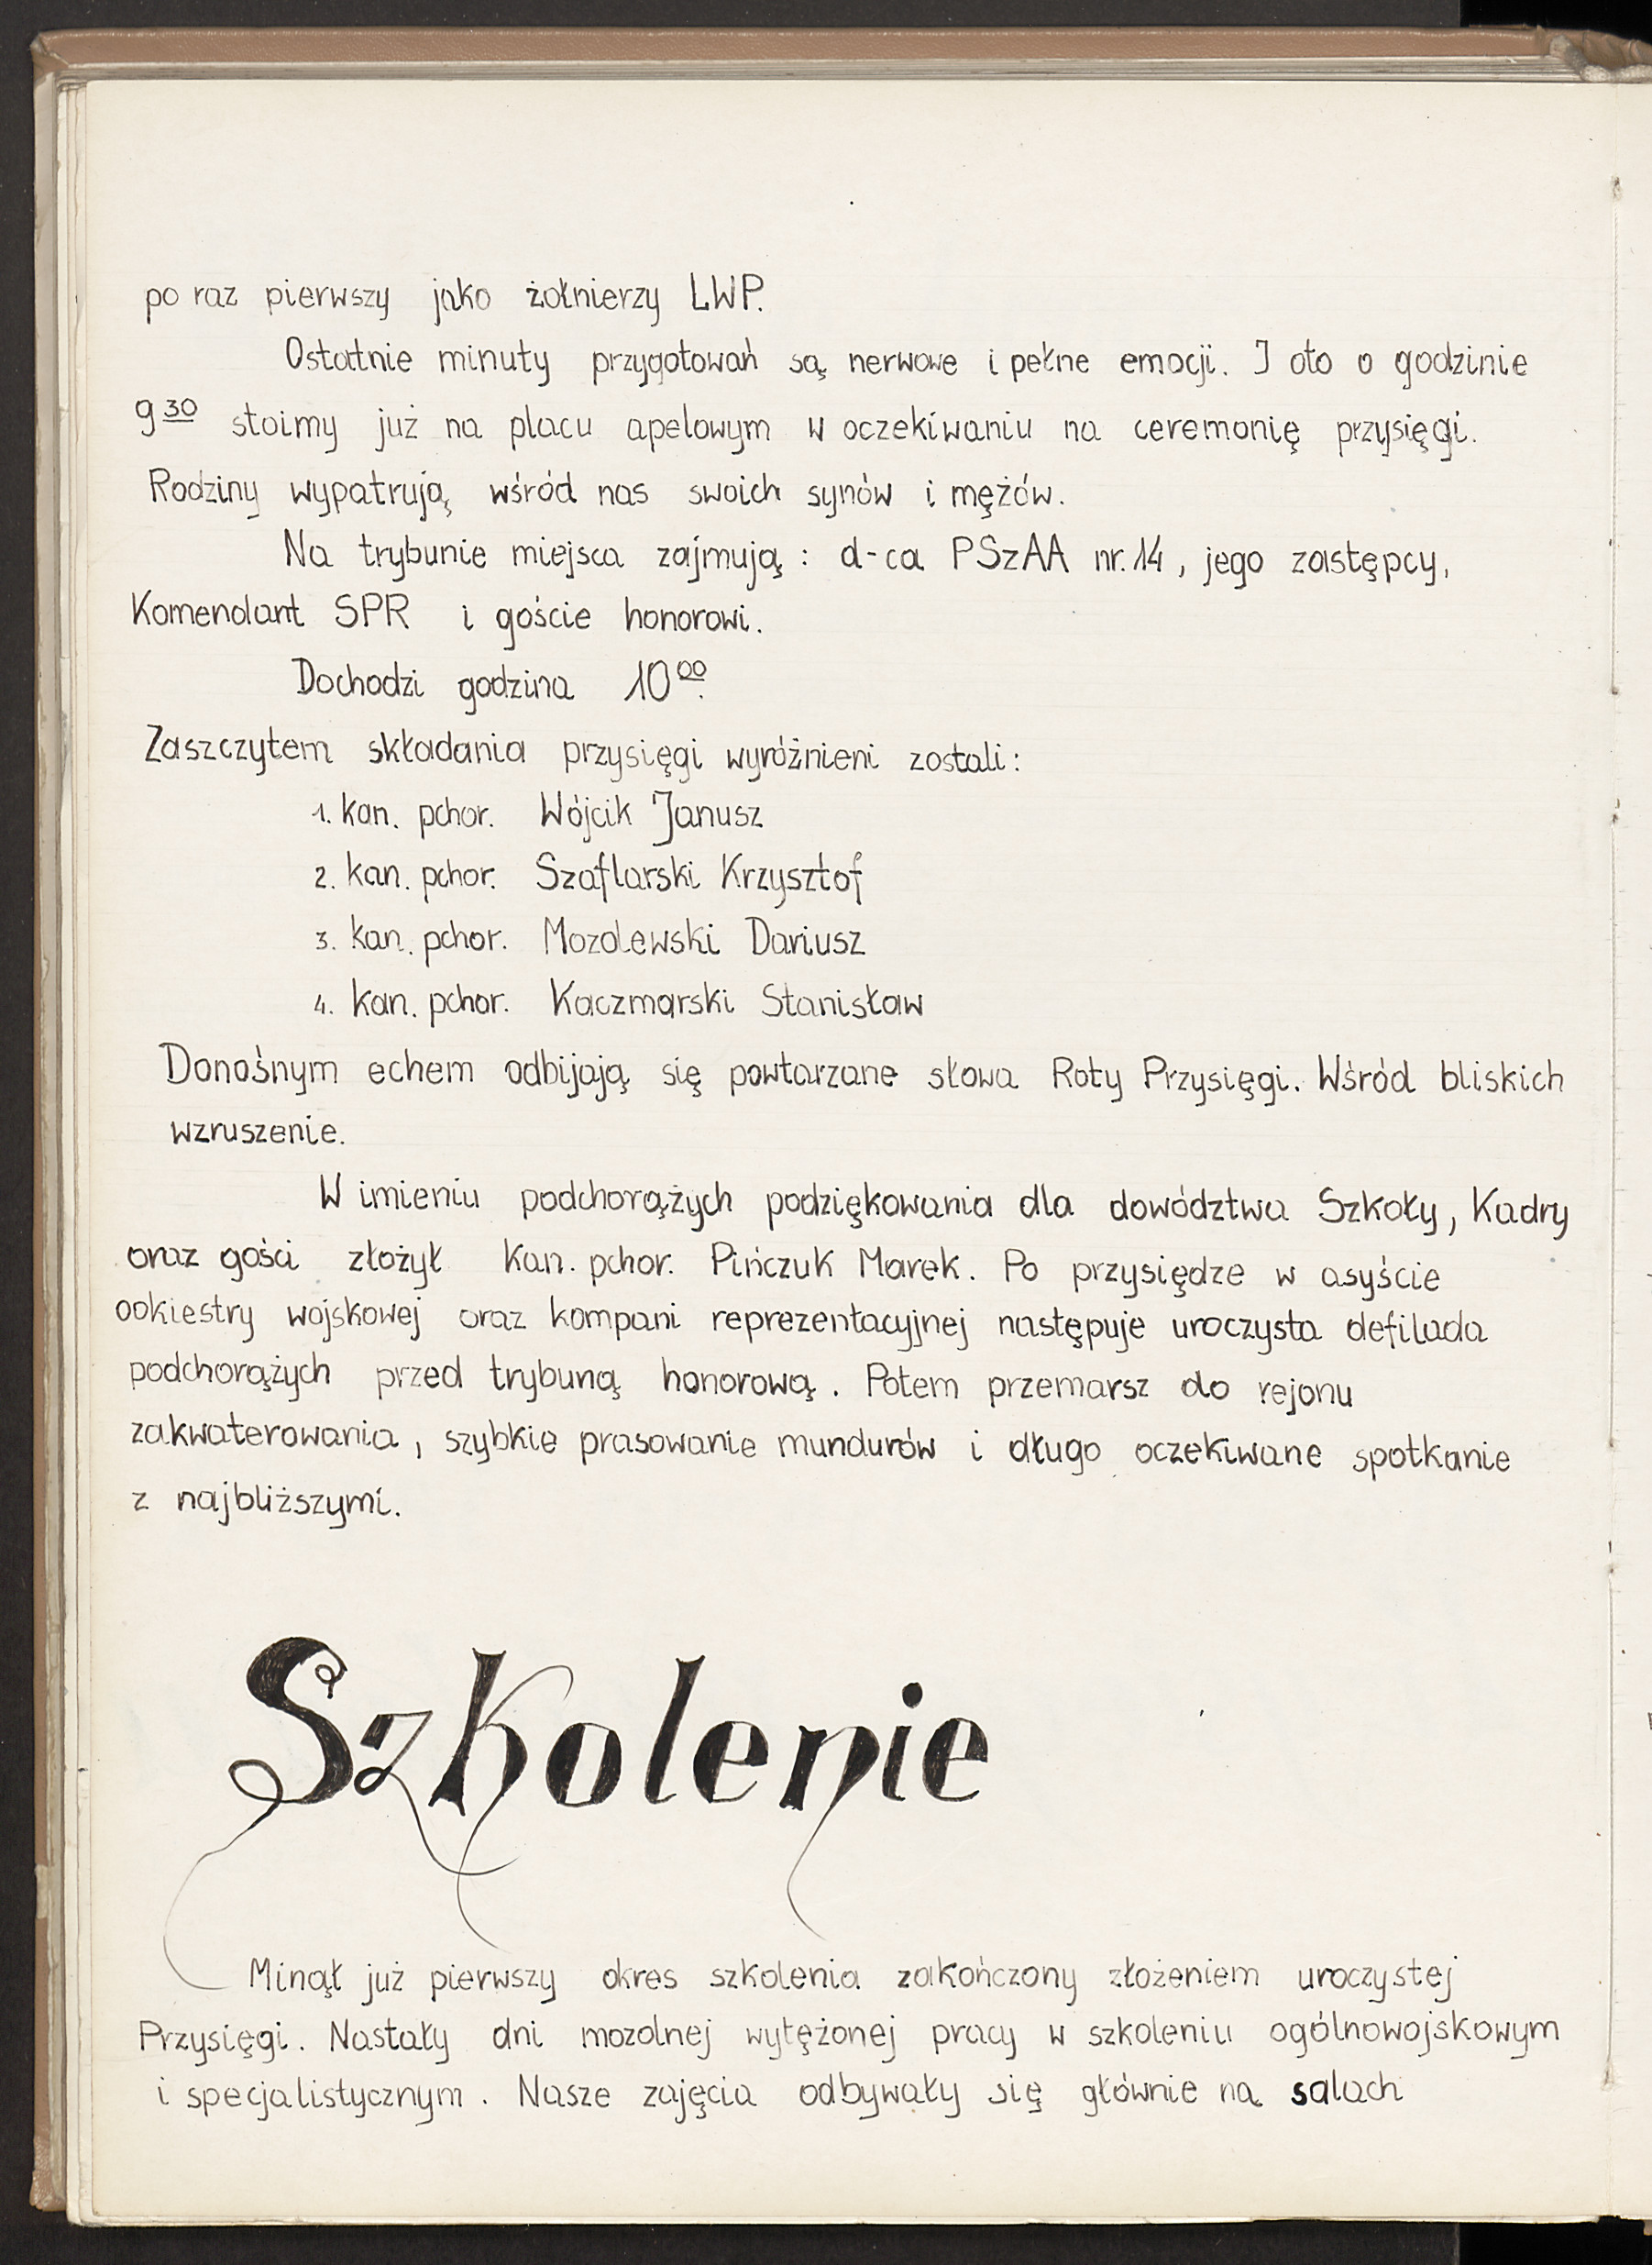 po raz pierwszy jako żołnierzy LWP.
Ostatnie minuty przygotowań są nerwowe i pełne emocji. I oto o godzinie
9³⁰ stoimy już na placu apelowym w oczekiwaniu na ceremonię przysięgi.
Rodziny wypatrują wśród nas swoich synów i mężów.
Na trybunie miejsca zajmują : d-ca PSzAA nr. 14, jego zastępcy,
Komendant SPR i goście honorowi.
Dochodzi godzina 10⁰⁰.
Zaszczytem składania przysięgi wyróżnieni zostali :
1. kan. pchor. Wójcik Janusz
2. kan. pchor. Szaflarski Krzysztof
3. kan. pchor. Mozolewski Dariusz
4. kan. pchor. Kaczmarski Stanisław
Donośnym echem odbijają się powtarzane słowa Roty Przysięgi. Wśród bliskich
wzruszenie.
W imieniu podchorążych podziękowania dla dowództwa Szkoły, Kadry
oraz gości złożył kan. pchor. Pińczuk Marek. Po przysiędze w asyście
ookiestry wojskowej oraz kompani reprezentacyjnej następuje uroczysta defilada
podchorążych przed trybuną honorową. Potem przemarsz do rejonu
zakwaterowania, szybkie prasowanie mundurów i długo oczekiwane spotkanie
z najbliższymi.
Szkolenie
Minął już pierwszy okres szkolenia zakończony złożeniem uroczystej
Przysięgi. Nastały dni mozolnej wytężonej pracy w szkoleniu ogólnowojskowym
i specjalistycznym. Nasze zajęcia odbywały się głównie na salach